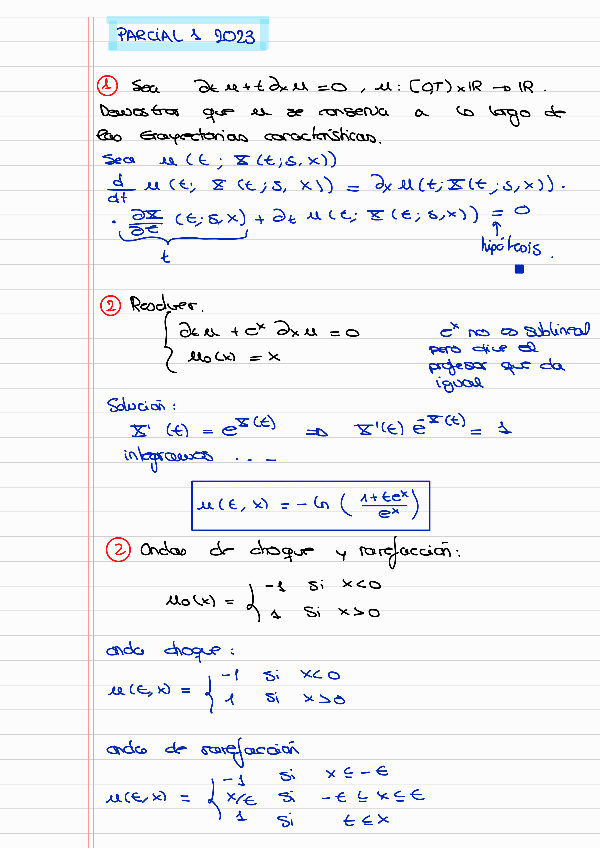 PARCIAL 1 2023
① Sea ∂t u + t ∂x u = 0 , u : [0,T) x ℝ → ℝ.
Demostrar que u se conserva a lo largo de
las trayectorias características.
Sea u(t; X(t;s,x))
d/dt u(t; X(t;s,x)) = ∂x u(t; X(t;s,x)) ·
· ∂X/∂t (t;s,x) + ∂t u(t; X(t;s,x)) = 0
t
↑
hipótesis.
■
② Resolver.
{ ∂t u + e^x ∂x u = 0
u0(x) = x
e^x no es sublineal
pero dice el
profesor que da
igual
Solución:
X'(t) = e^X(t) ⇒ X'(t) e^-X(t) = 1
integramos ...
u(t,x) = -ln ( (1+te^x)/e^x )
② Ondas de choque y rarefacción:
u0(x) = { -1 si x<0
1 si x>0
onda choque:
u(t,x) = { -1 si x<0
1 si x>0
onda de rarefacción
u(t,x) = { -1 si x ≤ -t
x/t si -t ≤ x ≤ t
1 si t ≤ x